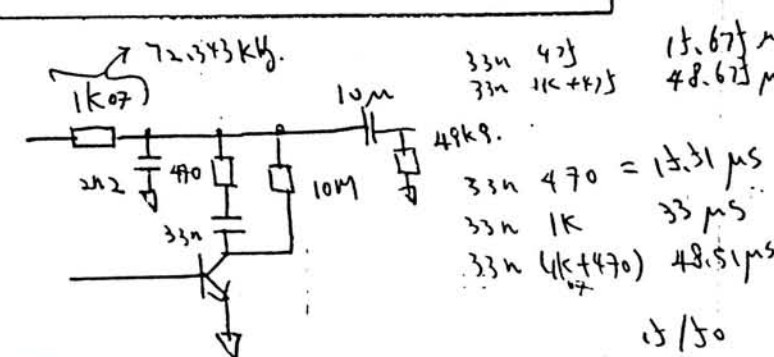 72.343kHz.
1k07
2n2
470
33n
10M
10μ
49k9.
33n 475 15.675 μ
33n 1K+475 48.675 μ
33n 470 = 15.51 μs
33n 1K 33 μs
33n (1K+470) 48.51μs
15/50